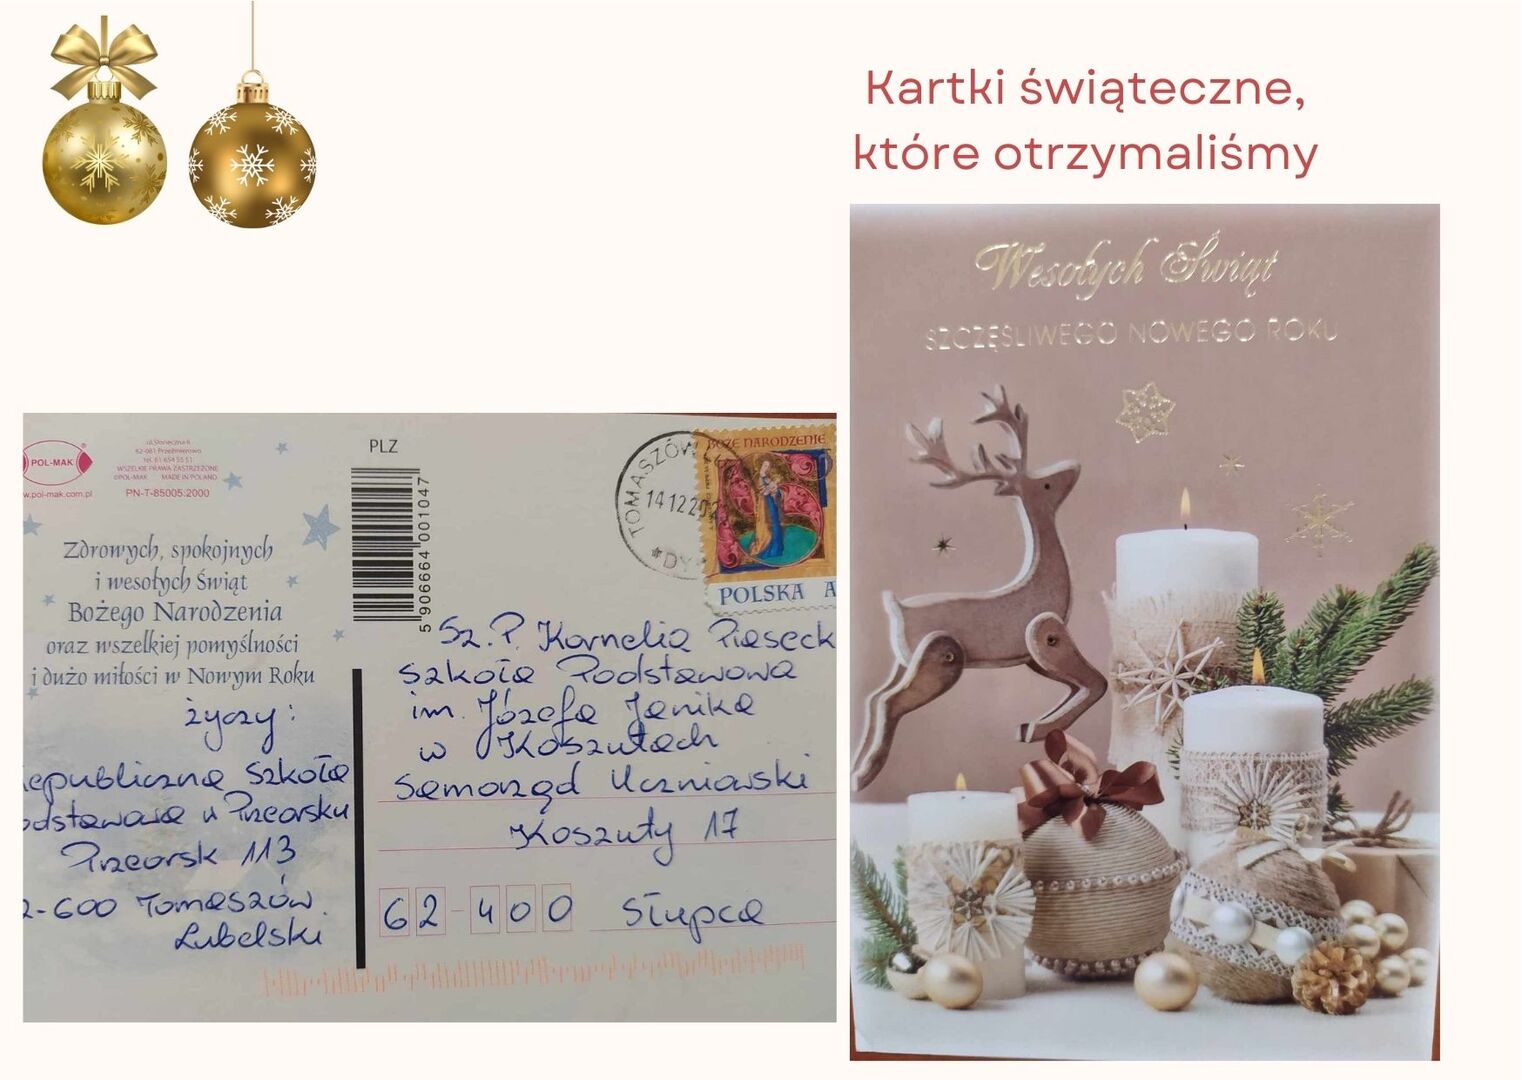 Kartki świąteczne,
które otrzymaliśmy
Wesołych Świąt
SZCZĘŚLIWEGO NOWEGO ROKU
POL-MAK
ul.Słoneczna 6
62-081 Przeźmierowo
tel. 61 654 55 51
WSZELKIE PRAWA ZASTRZEŻONE
©POL-MAK MADE IN POLAND
w.pol-mak.com.pl
PN-T-85005:2000
Zdrowych, spokojnych
i wesołych Świąt
Bożego Narodzenia
oraz wszelkiej pomyślności
i dużo miłości w Nowym Roku
życzy:
epubliczna Szkoła
odstawowa w Przeorsku
Przeorsk 113
2-600 Tomaszów
Lubelski
PLZ
5 906664 001047
TOMASZÓW
14.12.20
BOŻE NARODZENIE
POLSKA A
Sz. P. Kornelia Piaseck
Szkoła Podstawowa
im. Józefa Janika
w Koszutach
Samorząd Uczniowski
Koszuty 17
62-400 Słupca